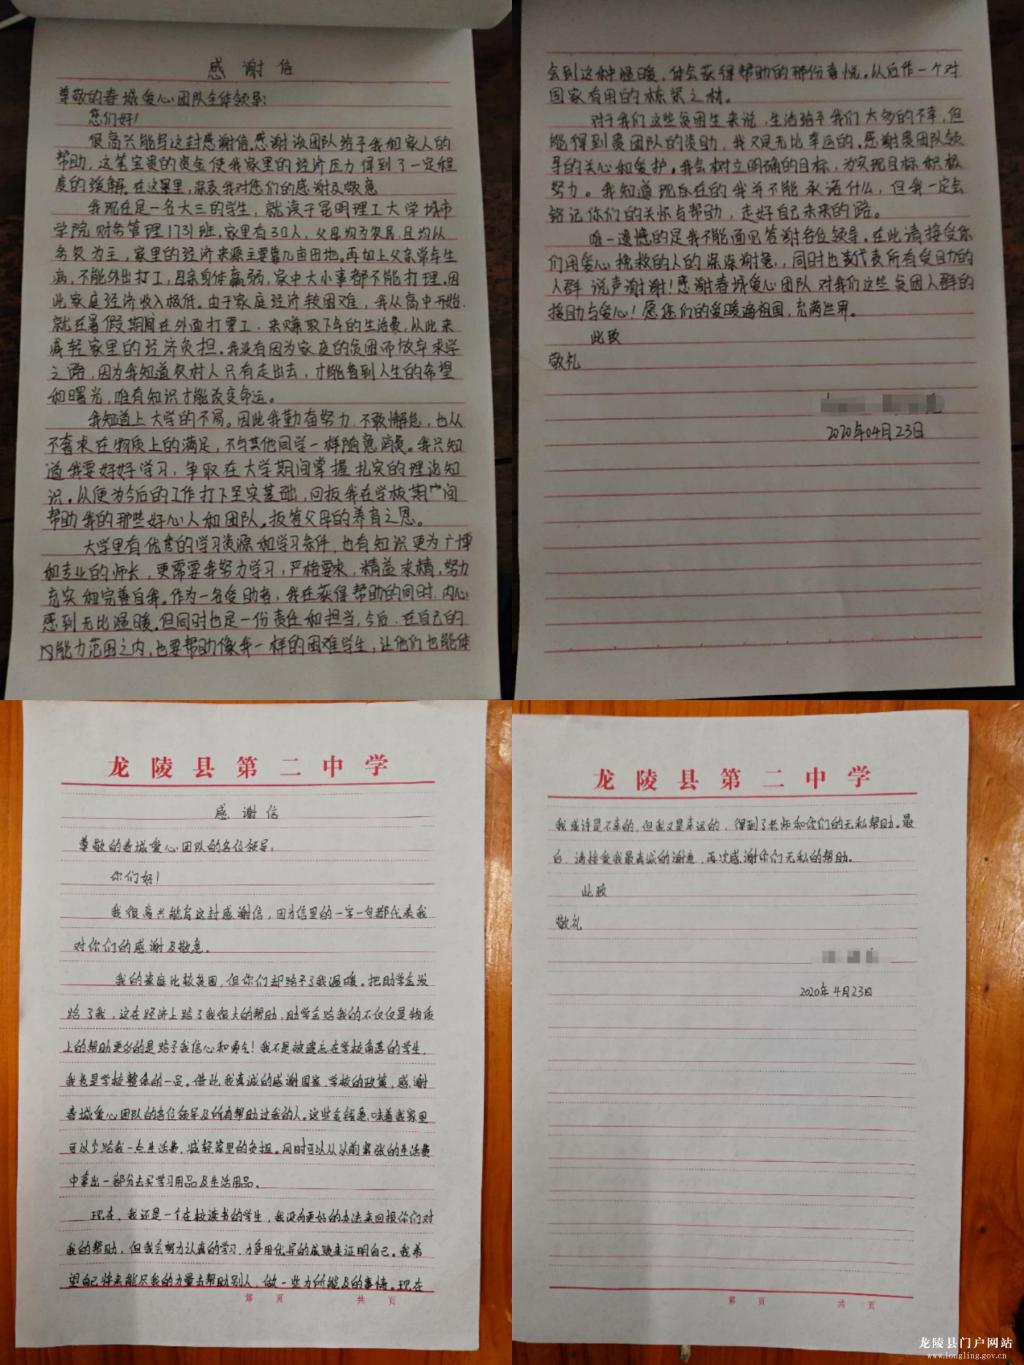 感谢信
尊敬的春城爱心团队全体领导:
您们好!
很高兴能写这封感谢信,感谢该团队给予我和家人的
帮助,这笔宝贵的资金使我家里的经济压力得到了一定程
度的缓解,在这里,深表我对您们的感谢及敬意
我现在是一名大三的学生,就读于昆明理工大学城市
学院财务管理1731班,家里有30人,父母均为农民,且均从
务农为主,家里的经济来源主要靠几亩田地。再加上父亲常年生
病,不能外出打工,母亲身体羸弱,家中大小事都不能打理。因
此家庭经济收入极低。由于家庭经济较困难,我从高中开始,
就在暑假期间在外面打零工,来赚取下年的生活费,从此来
减轻家里的经济负担。我没有因为家庭的贫困而放弃求学
之路,因为我知道农村人只有走出去,才能看到人生的希望
和曙光,唯有知识才能改变命运。
我知道上大学的不易。因此我勤奋努力,不敢懈怠,也从
不奢求在物质上的满足,不与其他同学一样随意消费。我只知
道我要好好学习,争取在大学期间掌握扎实的理论知
识。从便为今后的工作打下坚实基础,回报我在学校期间
帮助我的那些好心人和团队。报答父母的养育之恩。
大学里有优秀的学习资源和学习条件,也有知识更为广博
和专业的师长,更需要我努力学习,严格要求,精益求精,努力
充实和完善自我。作为一名受助者,我在获得帮助的同时,内心
感到无比温暖。但同时也是一份责任和担当,今后,在自己的
能力范围之内,也要帮助像我一样的困难学生,让他们也能体
会到这种温暖,体会获得帮助的那份喜悦。从后作一个对
国家有用的栋梁之材。
对于我们这些贫困生来说,生活给予我们太多的不幸,但
能得到贵团队的资助,我又是无比幸运的,感谢贵团队领
导的关心和爱护。我会树立明确的目标,为实现目标积极
努力。我知道现在的我并不能承诺什么,但我一定会
铭记你们的关怀与帮助,走好自己未来的路。
唯一遗憾的是我不能面见答谢各位领导。在此请接受你
们用爱心拯救的人的深深谢意,同时也谨代表所有受助的
人群说声谢谢!感谢春城爱心团队对我们这些贫困人群的
援助与爱心!愿您们的爱暖遍祖国,充满世界。
此致
敬礼
2020年04月23日
龙陵县第二中学
感谢信
尊敬的春城爱心团队的各位领导:
你们好!
我很高兴能写这封感谢信,因为信里的一字一句都代表我
对你们的感谢及敬意。
我的家庭比较贫困,但你们却给予了我温暖。把助学金发
给了我,这在经济上给了我很大的帮助,助学金给我的不仅仅是物质
上的帮助更多的是给予我信心和勇气!我不是被遗忘在学校角落的学生,
我也是学校整体的一员。借此,我真诚的感谢国家、学校的政策,感谢
春城爱心团队的各位领导及所有帮助过我的人。这些金钱意味着我家里
可以少给我一点生活费,减轻家里的负担。同时可以从以前紧张的生活费
中拿出一部分去买学习用品及生活用品。
现在,我还是一个在校读书的学生,我没有更好的办法来回报你们对
我的帮助,但我会努力认真的学习,力争用优异的成绩来证明自己。我希
望自己将来能尽我的力量去帮助别人,做一些力所能及的事情。现在
第 页 共 页
龙陵县第二中学
我或许是不幸的,但我又是幸运的,得到了老师和你们的无私帮助。最
后,请接受我最真诚的谢意,再次感谢你们无私的帮助。
此致
敬礼
2020年4月23日
第 页 共 页
龙陵县门户网站
www.longling.gov.cn